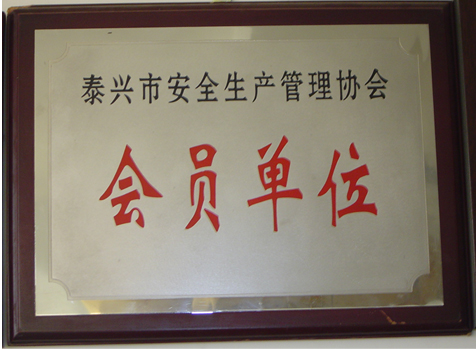 泰兴市安全生产管理协会
会员单位